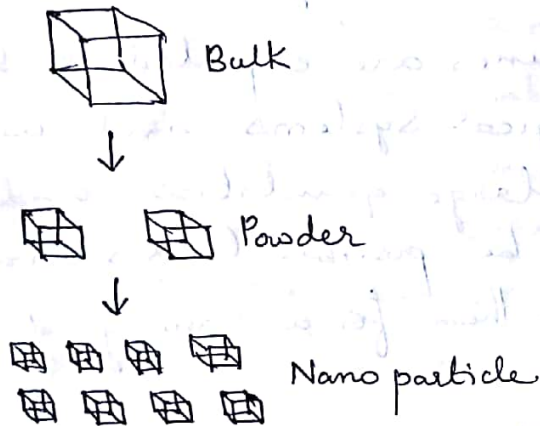 Bulk
Powder
Nano particle